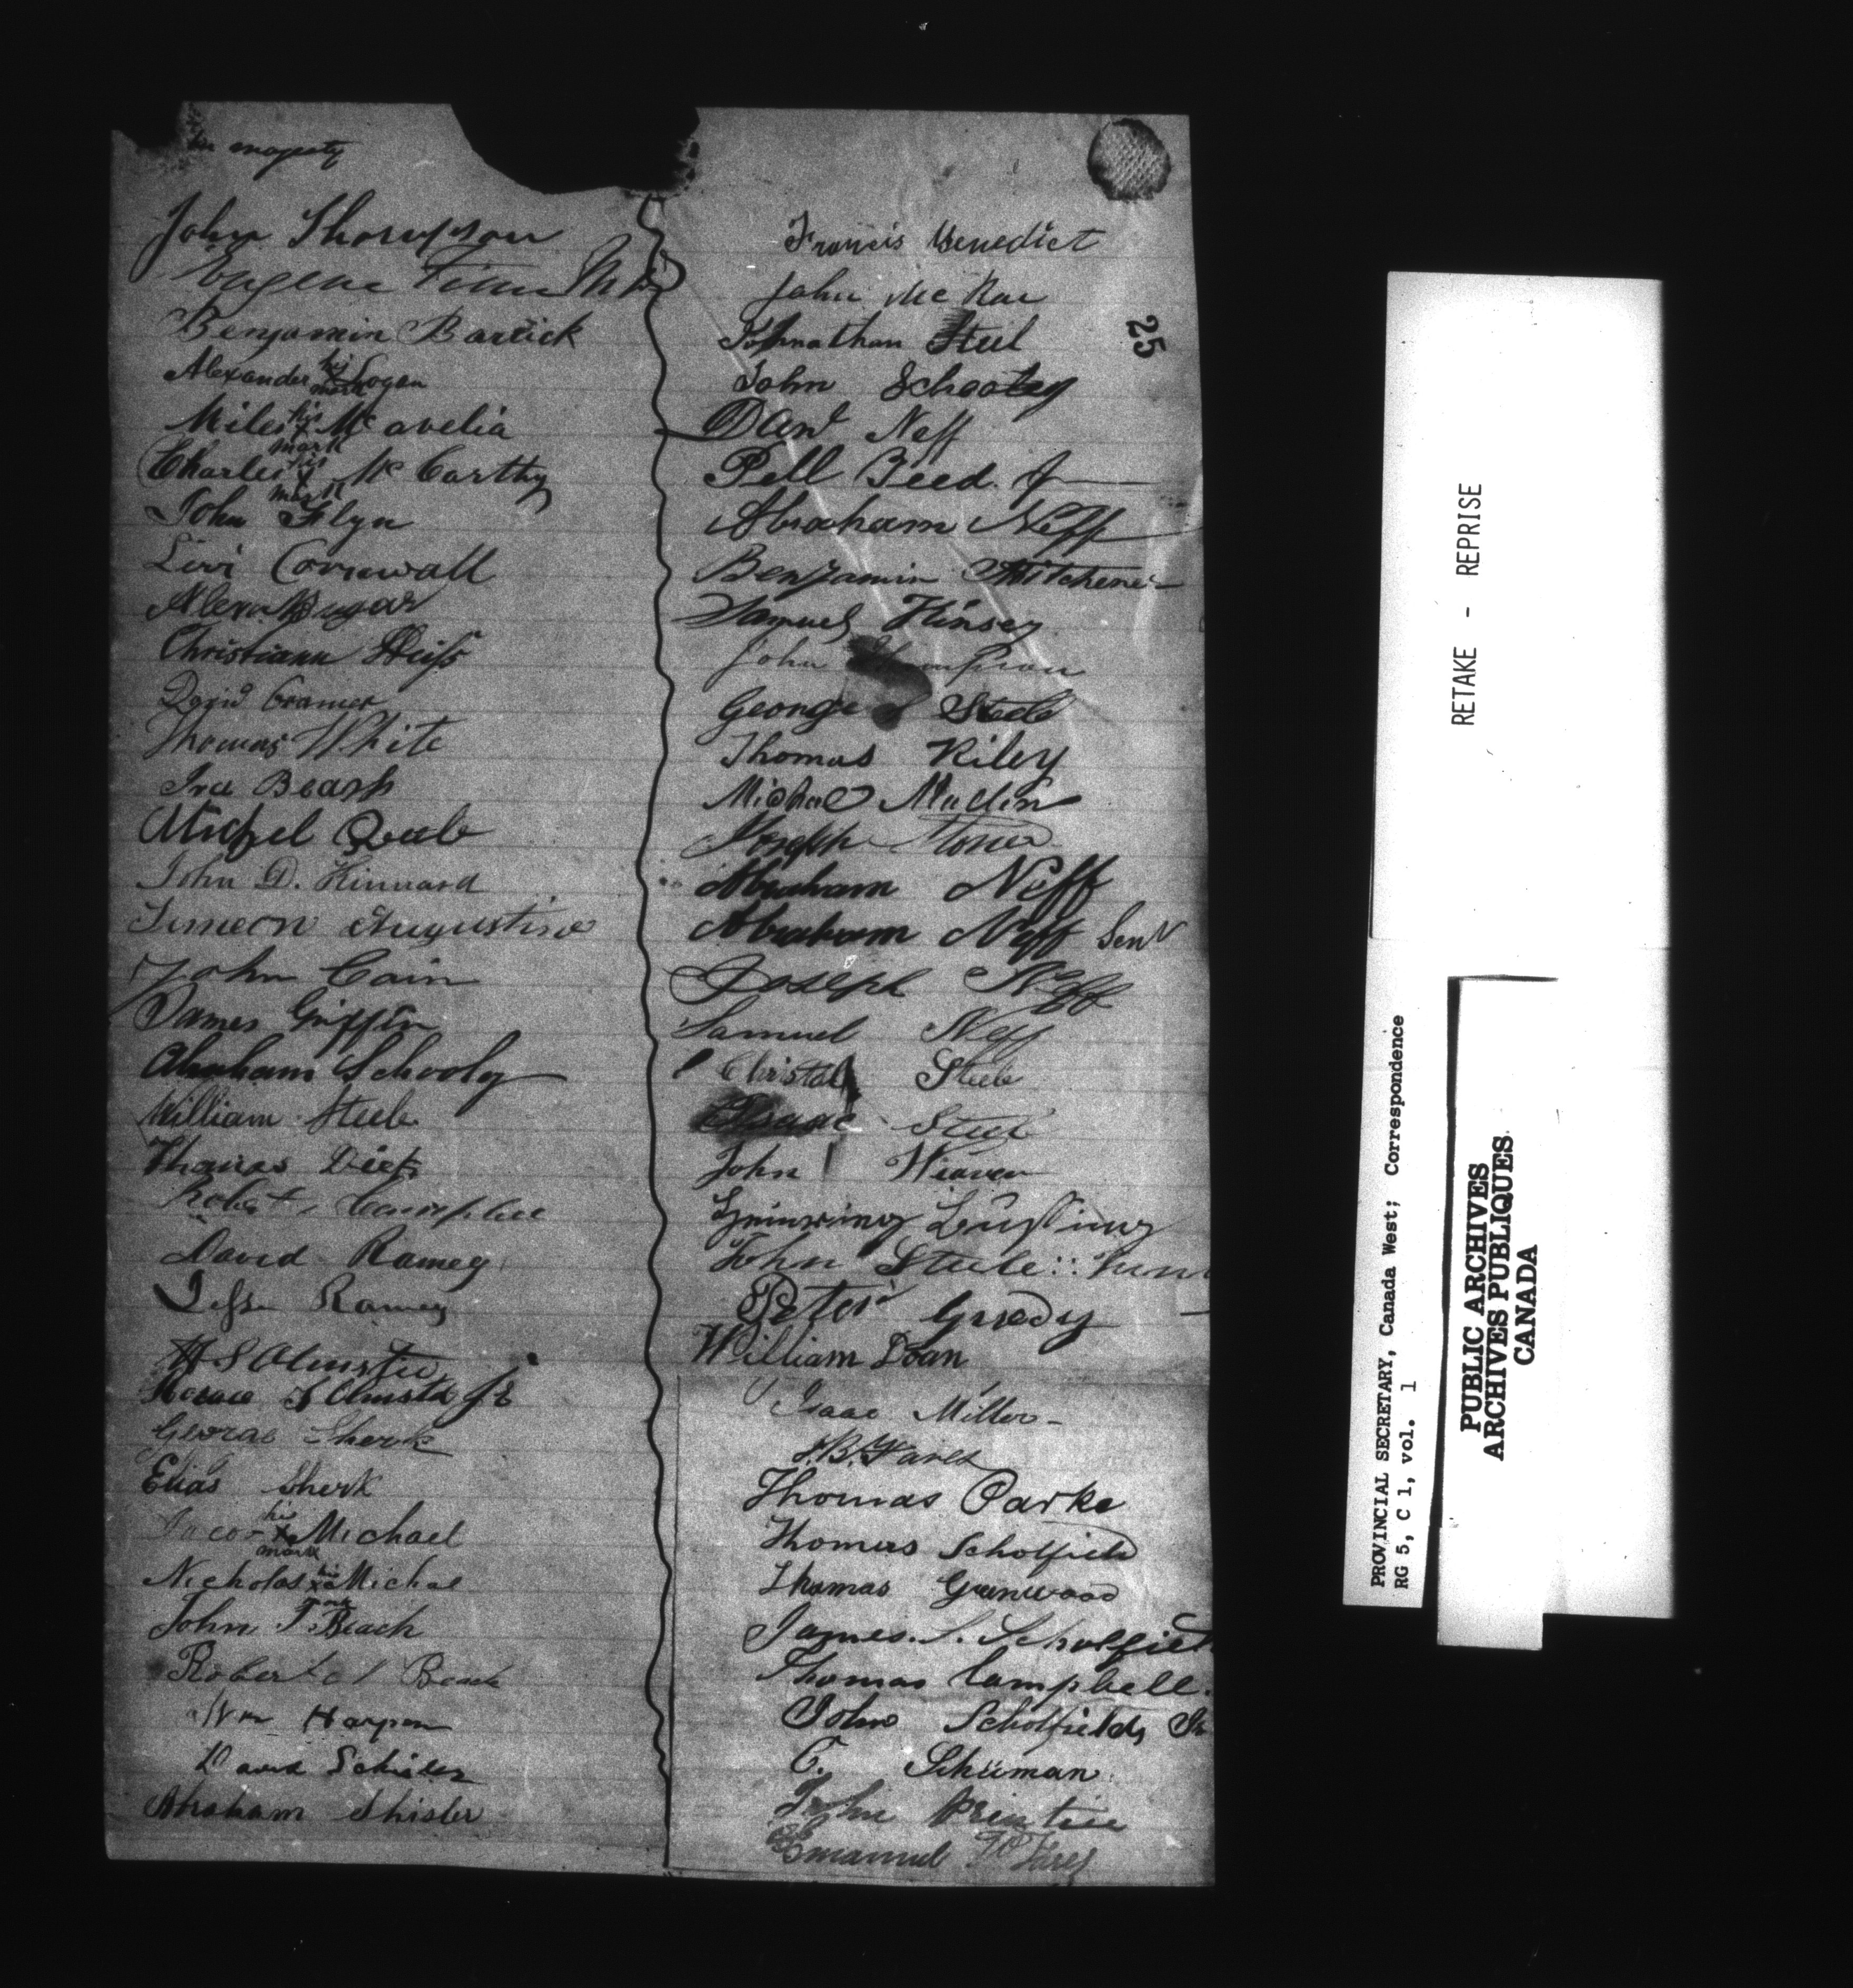 majesty
John Thompson
Eugene
Benjamin Barrick
Alexander his mark Logan
Miles his mark McAvelia
Charles his mark McCarthy
John Flyn
Levi Cornwall
Christiann
David Cramer
Thomas White
Ira Beash
John D. Kinnard
Simeon Augustine
John Cain
James Griffin
Abraham Schooly
William Steele
Thomas
Robert Campbell
David Ramey
Jesse Ramey
H S Olmsted
Horace S Olmsted Jr
George Sherk
Elias Sherk
his mark Michael
Nicholas his mark Michael
John T Beach
Robert
Wm Harper
David
Abraham Shisler
Francis Benedict
John McRae
Johnathan Steel
John Schooley
Neff
Pell Teed Jr
Abraham Neff
Benjamin Mitchener
Samuel Kinsey
John Thompson
George Steele
Thomas Riley
Michael Madin
Joseph
Abraham Neff
Abraham Neff Senr
Joseph Neff
Samuel Neff
Christal Steele
Isaac Steele
John Weaver
John Steele
Peter Gredy
William Doan
Isaac Miller
J. B. Fares
Thomas Parke
Thomas Scholfield
Thomas Greenwood
James. S. Scholfield
Thomas Campbell.
John Scholfield, Jr
C. Schüman
John Prentice
Emanuel Fares
25
RETAKE - REPRISE
PROVINCIAL SECRETARY, Canada West; Correspondence
RG 5, C 1, vol. 1
PUBLIC ARCHIVES
ARCHIVES PUBLIQUES
CANADA